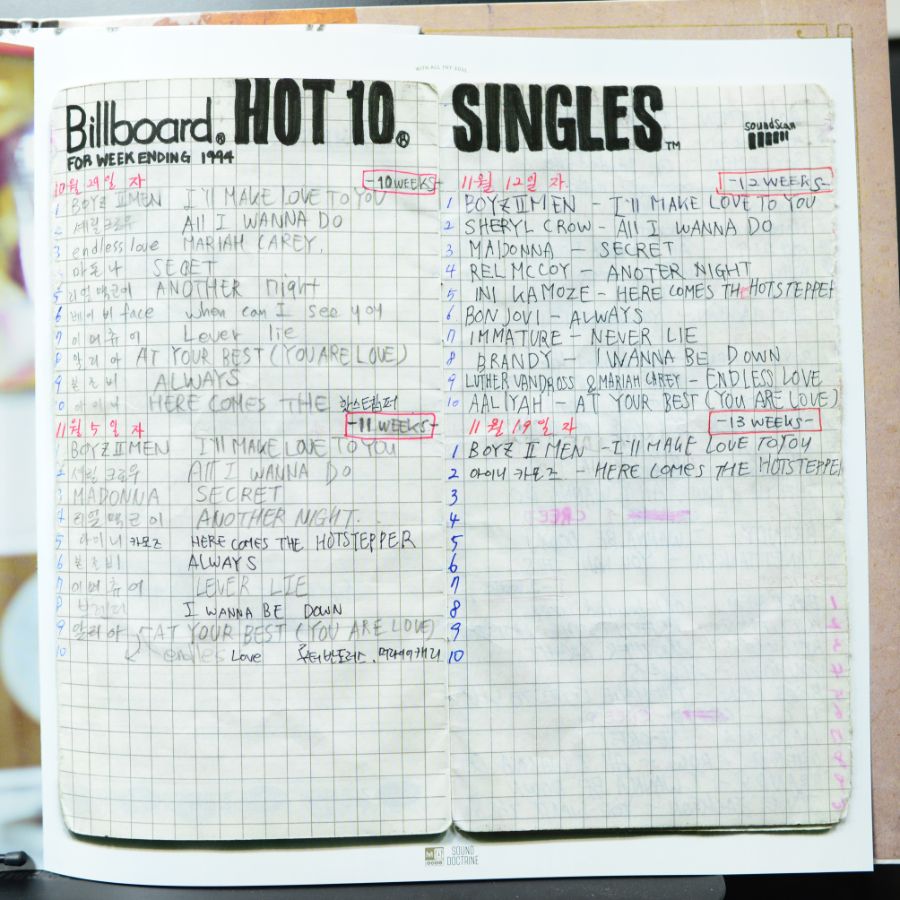 WITH ALL MY SOUL
Billboard® HOT 10®
FOR WEEK ENDING 1994
10월 29일 자 -10 WEEKS-
1 BOYZ II MEN I'll MAKE LOVE TO YOU
2 셰릴 크로우 All I WANNA DO
3 endless love MARIAH CAREY.
마돈나 SECRET
5 리얼 맥코이 ANOTHER night
6 베이비 face When can I see you
7 이머츄어 Lever lie
8 알리아 AT YOUR BEST (YOU ARE LOVE)
9 본조비 ALWAYS
10 아이니 HERE COMES THE 핫스텝퍼
11월 5일 자 -11 WEEKS-
1 BOYZ II MEN I'll MAKE LOVE TO YOU
2 셰릴 크로우 All I WANNA DO
3 MADONNA SECRET
4 리얼 맥코이 ANOTHER NIGHT..
5 아이니 카모즈 HERE COMES THE HOTSTEPPER
6 본조비 ALWAYS
7 이머츄어 LEVER LIE
8 브랜디 I WANNA BE DOWN
9 알리아 AT YOUR BEST (YOU ARE LOVE)
10 endles Love 루터 반도러스, 머라이어 캐리
SINGLES™
SoundScan
11월 12일 자 -12 WEEKS-
1 BOYZ II MEN - I'll MAKE LOVE TO YOU
2 SHERYL CROW - All I WANNA DO
3 MADONNA - SECRET
4 REL MCCOY - ANOTER NIGHT
5 INI KAMOZE - HERE COMES THE HOTSTEPPER
6 BON JOVI - ALWAYS
7 IMMATURE - NEVER LIE
8 BRANDY - I WANNA BE DOWN
9 LUTHER VANDROSS & MARIAH CAREY - ENDLESS LOVE
10 AALIYAH - AT YOUR BEST (YOU ARE LOVE)
11월 19일 자 -13 WEEKS-
1 BOYZ II MEN - I'll MAKE LOVE TO YOU
2 아이니 카모즈 - HERE COMES THE HOTSTEPPER
3
4
5
6
7
8
9
10
SOUND
DOCTRINE